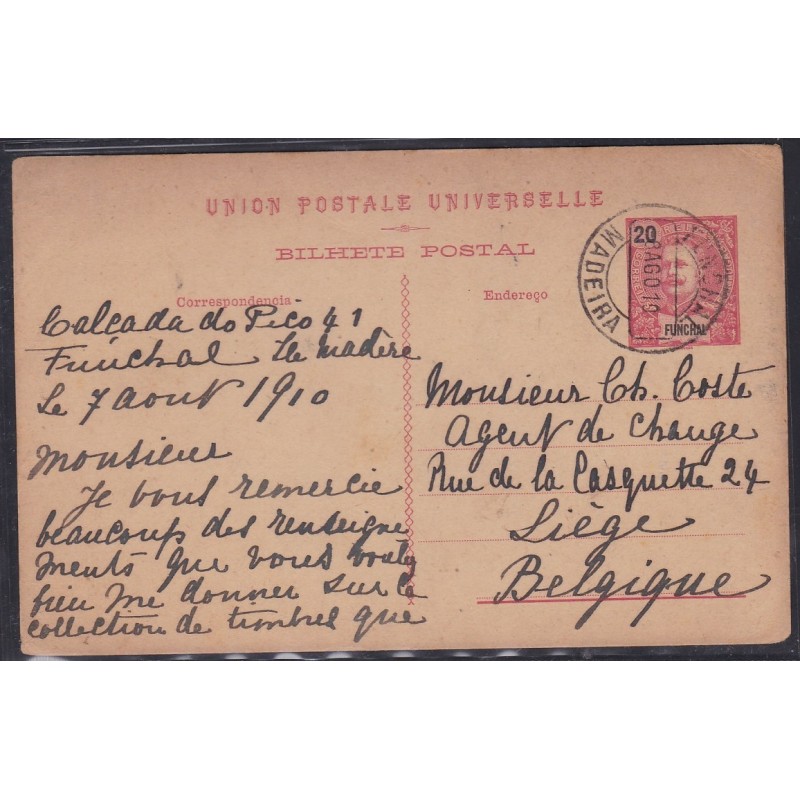 UNION POSTALE UNIVERSELLE
BILHETE POSTAL
Correspondencia
Endereço
20
FUNCHAL
FUNCHAL
MADEIRA
8 AGO 10
Calçada do Pico 41
Funchal Ile Madère
Le 7 aout 1910
Monsieur
Je vous remercie
beaucoup des renseigne
ments que vous
bien me donner sur la
collection de timbres que
Monsieur Ch. Coste
Agent de Change
Rue de la Casquette 24
Liège
Belgique